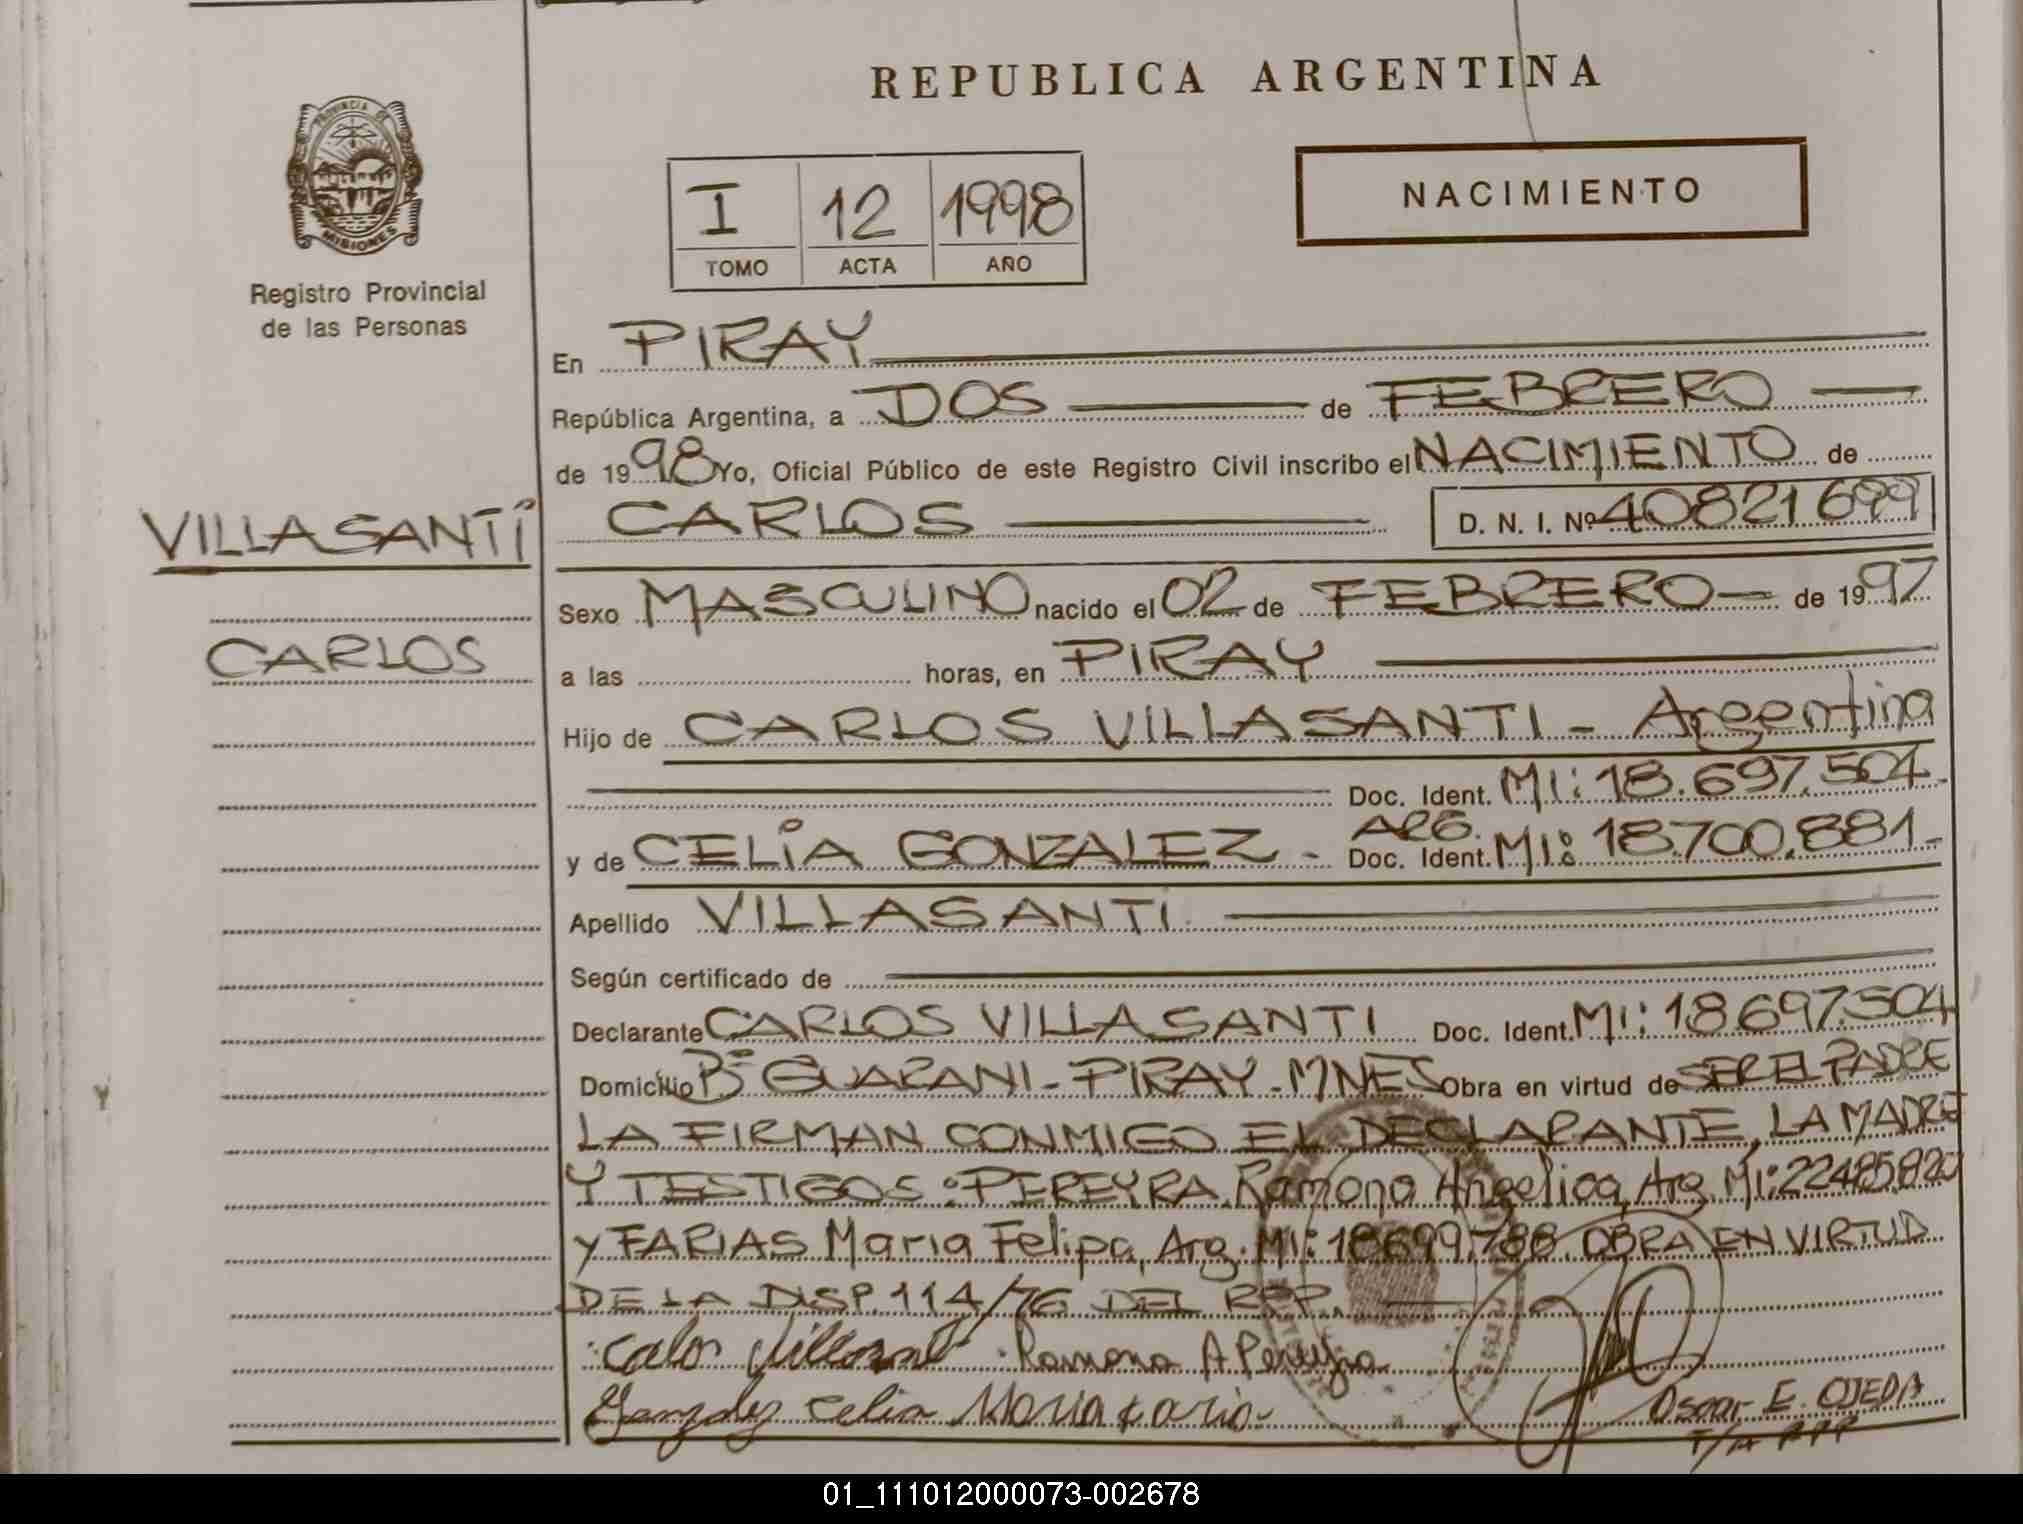 REPUBLICA ARGENTINA
PROVINCIA DE
MISIONES
Registro Provincial
de las Personas
I 12 1998
TOMO ACTA AÑO
NACIMIENTO
En PIRAY
República Argentina, a DOS de FEBRERO
de 1998 Yo, Oficial Público de este Registro Civil inscribo el NACIMIENTO de
VILLASANTI
CARLOS D. N. I. Nº 40821699
Sexo MASCULINO nacido el 02 de FEBRERO de 1997
CARLOS
a las horas, en PIRAY
Hijo de CARLOS VILLASANTI - Argentina
Doc. Ident. MI: 18.697.504
y de CELIA GONZALEZ - ARG. Doc. Ident. MI: 18.700.881-
Apellido VILLASANTI
Según certificado de
Declarante CARLOS VILLASANTI Doc. Ident. MI: 18.697.504
Domicilio Bº GUARANI - PIRAY - MNES Obra en virtud de SER EL PADRE
LA FIRMAN CONMIGO EL DECLARANTE, LA MADRE
Y TESTIGOS: PEREYRA, Ramona Angelica, Arg. MI: 22485.820
y FARIAS Maria Felipa, Arg. MI: 18699.788. OBRA EN VIRTUD
DE LA DISP. 114/76 DEL RPP.
Ramona A Pereyra
Gonzalez Celia Maria Faria
Oscar E. OJEDA
01_111012000073-002678